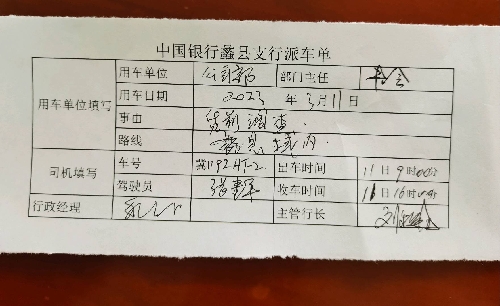 中国银行蠡县支行派车单
用车单位填写 用车单位 公司部 部门主任
用车日期 2023 年 3月11日
事由 贷前调查
路线 蠡县城内
司机填写 车号 出车时间 11日9时00分
驾驶员 收车时间 11日16时00分
行政经理 主管行长